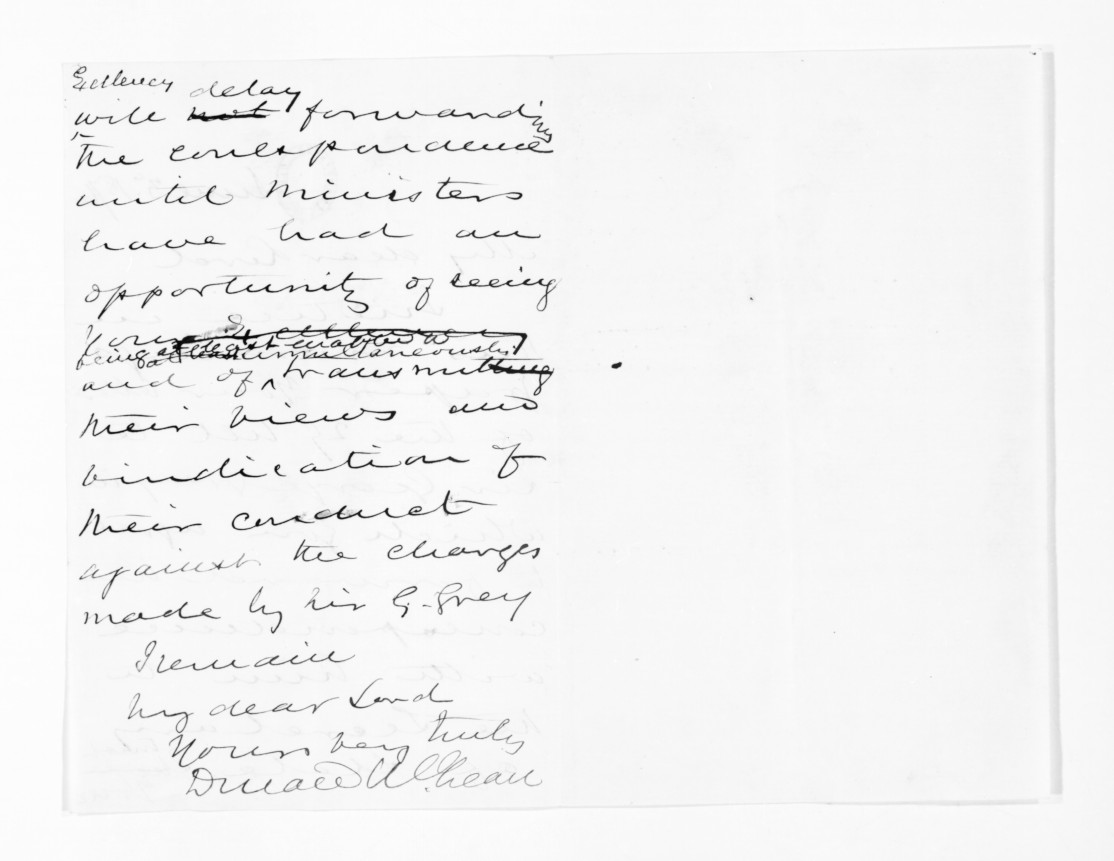 Excellency delay
will not forwarding
the correspondence
until Ministers
have had an
opportunity of seeing
Your Excellency
being at least enabled to
simultaneously
and of transmitting
their views and
vindication of
their conduct
against the charges
made by Sir G. Grey
I remain
My dear Lord
Yours very truly
Donald McLean